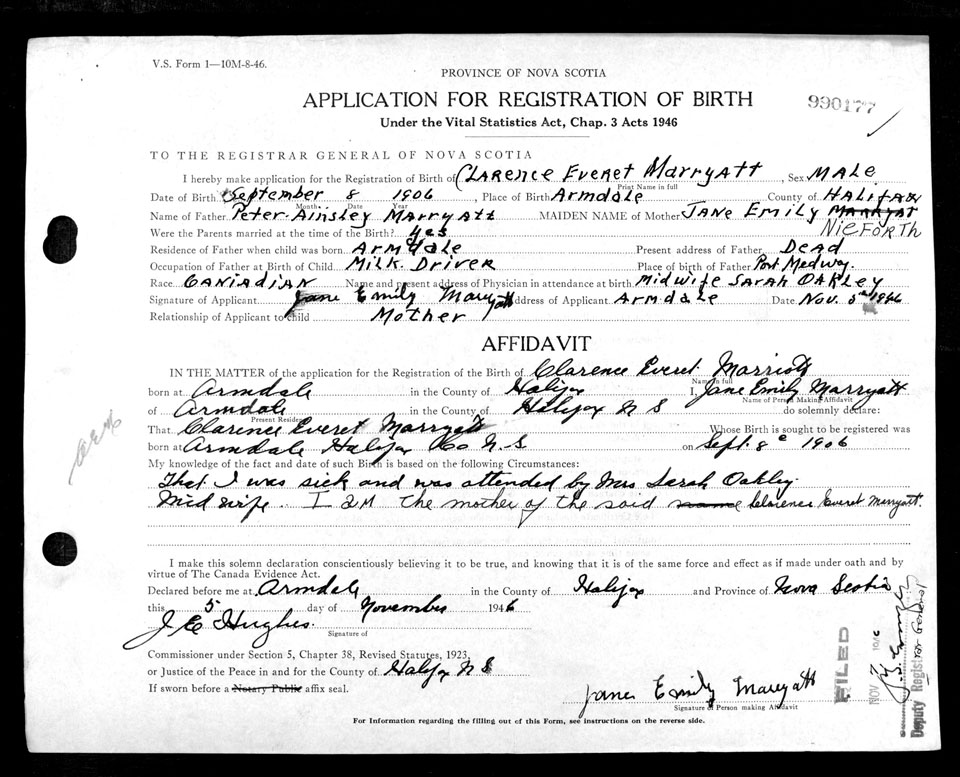 V.S. Form 1—10M-8-46.
PROVINCE OF NOVA SCOTIA
APPLICATION FOR REGISTRATION OF BIRTH
990177
Under the Vital Statistics Act, Chap. 3 Acts 1946
TO THE REGISTRAR GENERAL OF NOVA SCOTIA
I hereby make application for the Registration of Birth of CLARENCE EVERET MARRYATT, Sex MALE
Print Name in full
Date of Birth September 8 1906, Place of Birth Armdale County of HALIFAX
Month Date Year
Name of Father Peter Ainsley Marryatt MAIDEN NAME of Mother JANE EMILY MARRYAT
NIEFORTH
Were the Parents married at the time of the Birth? yes
Residence of Father when child was born ARMDALE Present address of Father DEAD
Occupation of Father at Birth of Child MILK DRIVER Place of birth of Father Port Medway.
Race CANIADIAN Name and present address of Physician in attendance at birth MIDWIFE SARAH OAKLEY
Signature of Applicant Jane Emily Marryatt Address of Applicant ARMDALE Date Nov. 5th 1946
Relationship of Applicant to child MOTHER
AFFIDAVIT
IN THE MATTER of the application for the Registration of the Birth of Clarence Everet Marriott
Name in full
born at Armdale in the County of Halifax I, Jane Emily Marryatt
Name of Person Making Affidavit
of Armdale in the County of Halifax N S do solemnly declare:
Present Residence
That Clarence Everet Marryatt Whose Birth is sought to be registered was
born at Armdale Halifax Co N.S. on Sept. 8 1906
My knowledge of the fact and date of such Birth is based on the following Circumstances:
That I was sick and was attended by Mrs Sarah Oakley.
Mid wife. I am the mother of the said name Clarence Everet Marryatt.
I make this solemn declaration conscientiously believing it to be true, and knowing that it is of the same force and effect as if made under oath and by
virtue of The Canada Evidence Act.
Declared before me at Armdale in the County of Halifax and Province of Nova Scotia
this 5 day of November 1946
J E Hughes.
Signature of
Commissioner under Section 5, Chapter 38, Revised Statutes, 1923,
or Justice of the Peace in and for the County of Halifax N S
If sworn before a Notary Public affix seal.
Jane Emily Marryatt
Signature of Person making Affidavit
FILED
NOV 7
Deputy Registrar General
For Information regarding the filling out of this Form, see instructions on the reverse side.